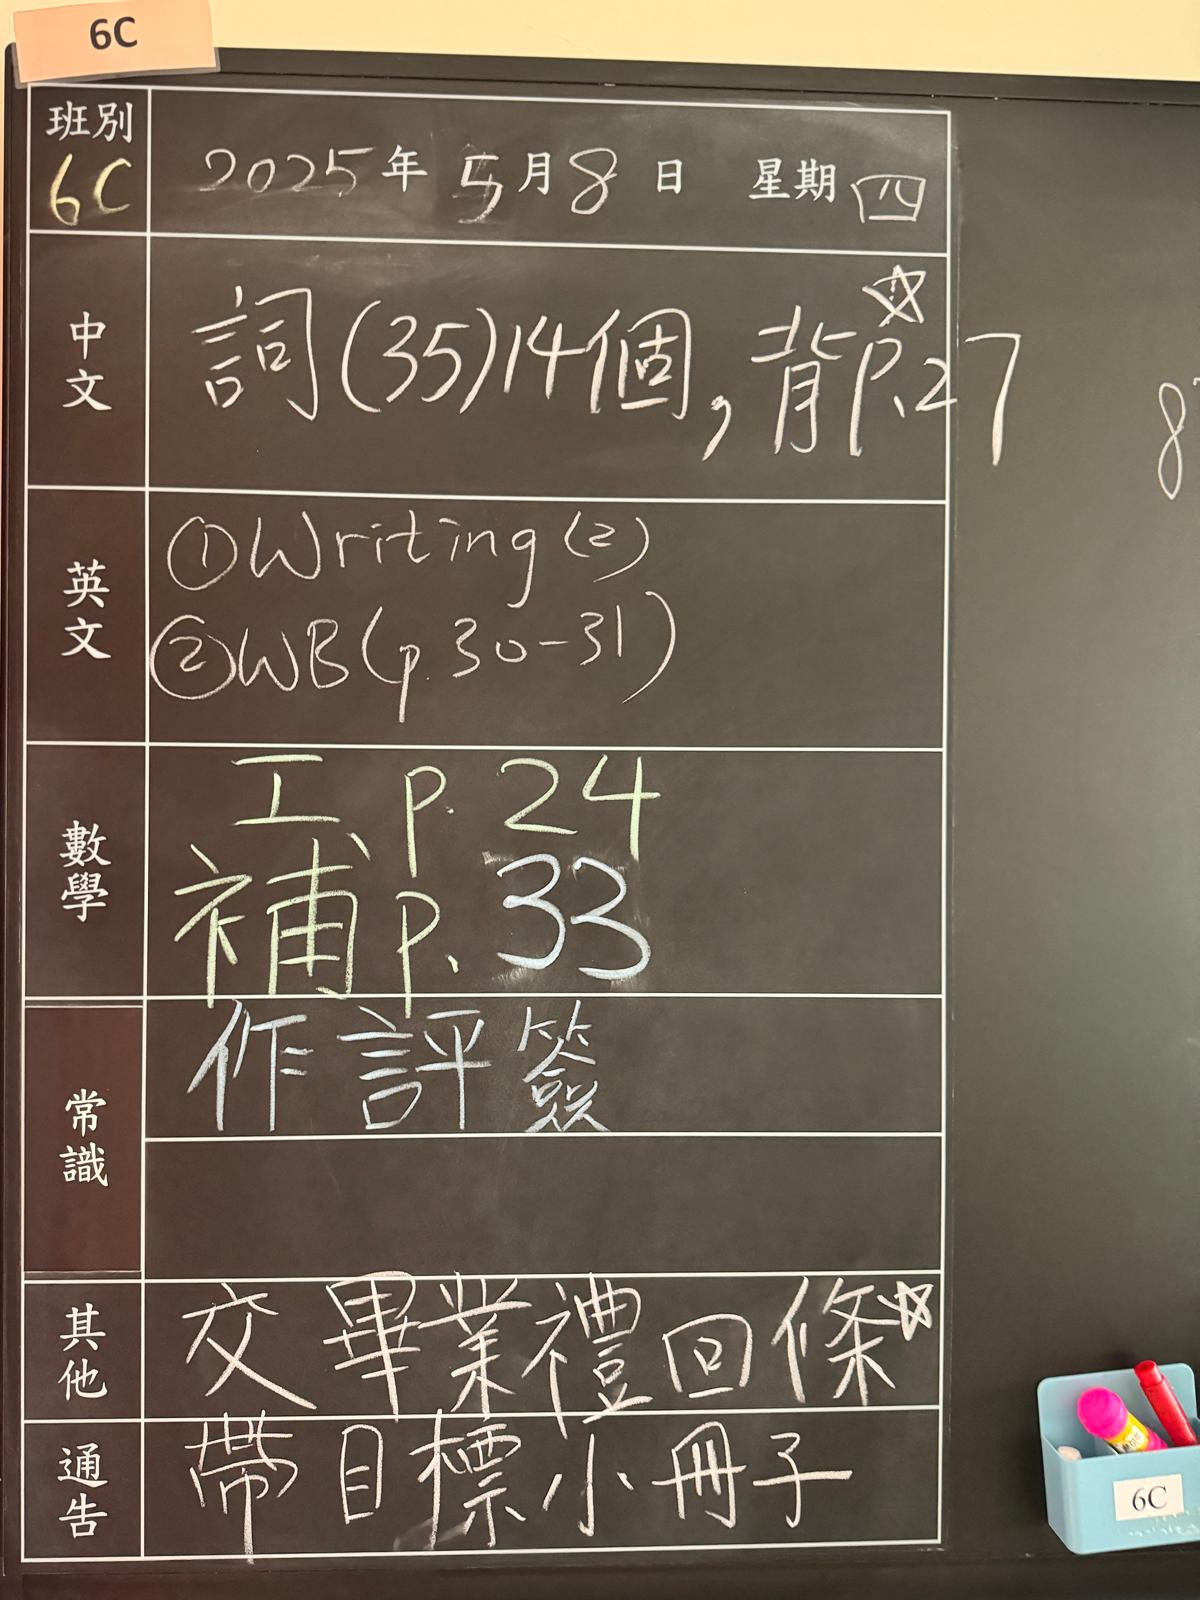 6C
班別 6C
2025年5月8日 星期四
中文
詞(35)14個,背P.27
英文
①Writing(2)
②WB(p.30-31)
數學
工、p.24
補P.33
常識
作評簽
其他
交畢業禮回條
通告
帶目標小冊子
8
6C